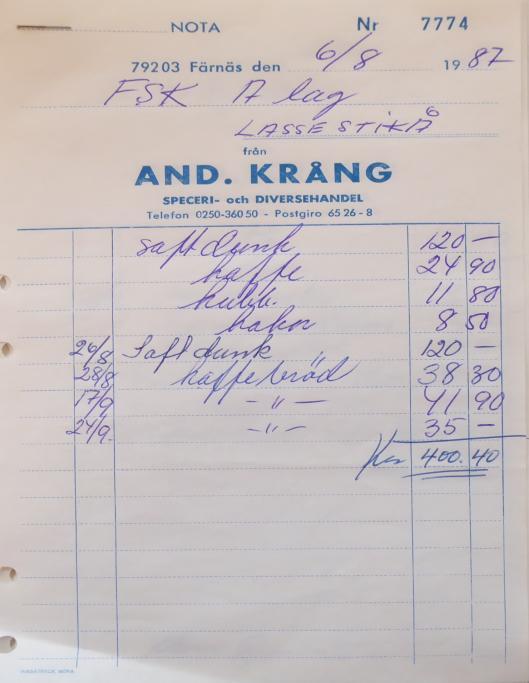 NOTA Nr 7774
79203 Färnäs den 6/8 1987
FSK A lag
LASSE STIKÅ
från
AND. KRÅNG
SPECERI- och DIVERSEHANDEL
Telefon 0250-360 50 - Postgiro 65 26 - 8
saftdunk 120 —
kaffe 24 90
11 80
kakor 8 50
26/8 Saftdunk 120 —
28/8 kaffebröd 38 30
17/9 — " — 41 90
24/9. — " — 35 —
Kr 400.40